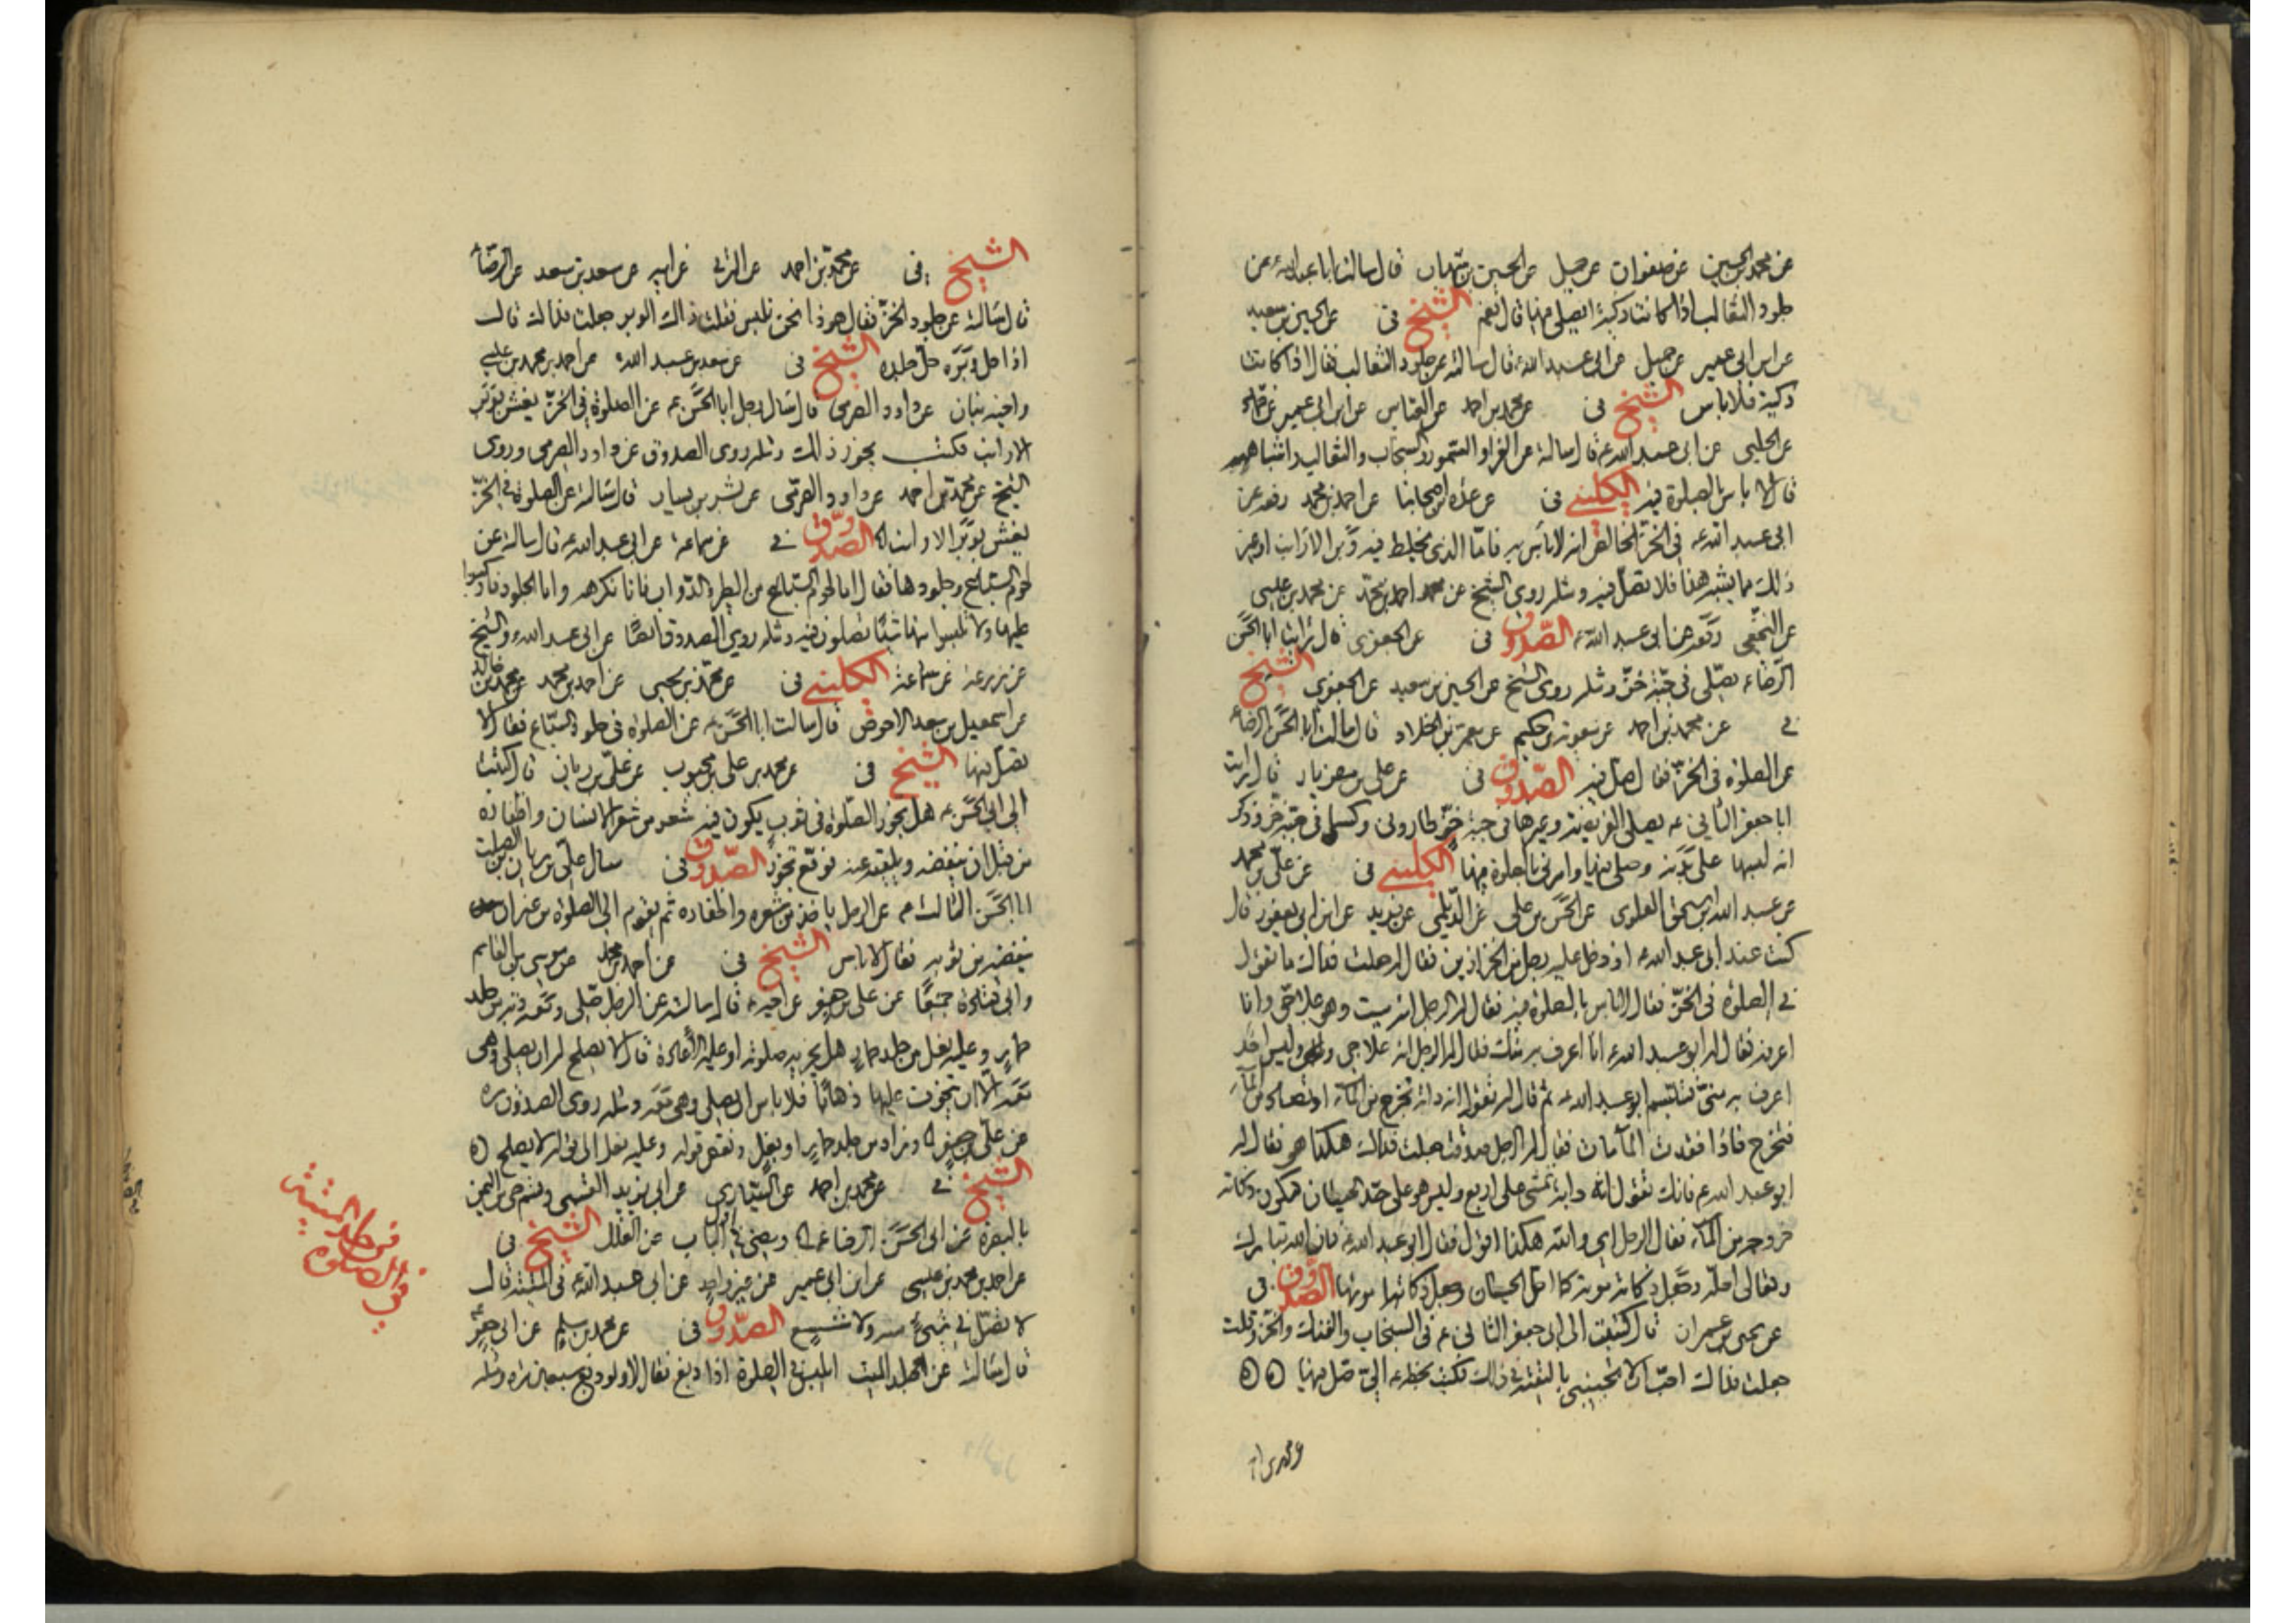 عن محمد بن الحسين عن صفوان عن جميل عن الحسين بن شهاب قال سالت ابا عبد الله ع عن
جلود الثعالب اذا كانت ذكية ايصلى فيها قال نعم الشيخ فى عن الحسين بن سعيد
عن ابن ابى عمير عن جميل عن ابى عبد الله ع قال سالته عن جلود الثعالب فقال اذا كانت
ذكية فلا باس الشيخ فى عن محمد بن احمد عن العباس عن ابن ابى عمير عن حماد
عن الحلبى عن ابى عبد الله ع قال سالته عن الفراء والسمور والسنجاب والثعالب واشباهه
قال لا باس بالصلوة فيه الكلينى فى عن عدة من اصحابنا عن احمد بن محمد رفعه عن
ابى عبد الله ع فى الخز الخالص انه لا باس به فاما الذى يخلط فيه وبر الارانب او غير
ذلك مما يشبه هذا فلا تصل فيه ومثله روى الشيخ عن محمد بن احمد بن يحيى عن محمد بن عيسى
عن النخعى رفعه عن ابى عبد الله ع الصدوق فى عن الجعفرى قال رايت ابا الحسن
الرضا ع يصلى فى جبة خز ومثله روى الشيخ عن الحسين بن سعيد عن الجعفرى الشيخ
فى عن محمد بن احمد عن معوية بن حكيم عن معمر بن خلاد قال سالت ابا الحسن الرضا ع
عن الصلوة فى الخز فقال صل فيه الصدوق فى عن على بن مهزيار قال رايت
ابا جعفر الثانى ع يصلى الفريضة وغيرها فى جبة خز طارونى وكسانى جبة خز وذكر
انه لبسها على بدنه وصلى فيها وامرنى بالصلوة فيها الكلينى فى عن على بن محمد
عن عبد الله بن اسحق العلوى عن الحسن بن على عن الديلمى عن فريد عن ابن ابى يعفور قال
كنت عند ابى عبد الله ع اذ دخل عليه رجل من الخزازين فقال له جعلت فداك ما تقول
فى الصلوة فى الخز فقال لا باس بالصلوة فيه فقال له الرجل انه ميت وهو علاجى وانا
اعرفه فقال له ابو عبد الله ع انا اعرف به منك فقال له الرجل انه علاجى وليس احد
اعرف به منى فتبسم ابو عبد الله ع ثم قال له تقول انه دابة تخرج من الماء او تصاد من الماء
فتخرج فاذا فقدت الماء مات فقال له الرجل صدقت جعلت فداك هكذا هو فقال له
ابو عبد الله ع فانك تقول انه دابة تمشى على اربع وليس هو على حد الحيتان فيكون ذكاته
خروجه من الماء فقال الرجل اى والله هكذا اقول فقال ابو عبد الله ع فان الله تبارك
وتعالى احله وجعل ذكاته موته كما احل الحيتان وجعل ذكاتها موتها الصدوق فى
عن يحيى بن عمران قال كتبت الى ابى جعفر الثانى ع فى السنجاب والفنك والخز وقلت
جعلت فداك احب ان لا تجيبنى بالتقية فى ذلك فكتب بخطه الى صل فيها
الشيخ فى عن محمد بن احمد عن البرقى عن ابيه عن سعد بن سعد عن الرضا ع
قال سالته عن جلود الخز فقال هو ذا نحن نلبس فقلت ذاك الوبر جعلت فداك قال
اذا حل وبره حل جلده الشيخ فى عن سعد بن عبد الله عن احمد بن محمد بن عيسى
واخيه بنان عن داود الصرمى قال سال رجل ابا الحسن ع عن الصلوة فى الخز يغش بوبر
الارانب فكتب يجوز ذلك ومثله روى الصدوق عن داود الصرمى وروى
الشيخ عن محمد بن احمد عن داود الصرمى عن بشير بن يسار قال سالته عن الصلوة فى الخز
يغش بوبر الارانب الصدوق فى عن سماعة عن ابى عبد الله ع قال سالته عن
لحوم السباع وجلودها فقال اما لحوم السباع من الطير والدواب فانا نكرهه واما الجلود فاركبوا
عليها ولا تلبسوا منها شيئا تصلون فيه ومثله روى الصدوق ايضا عن ابى عبد الله ع والشيخ
عن زرعة عن سماعة الكلينى فى عن محمد بن يحيى عن احمد بن محمد عن محمد بن خالد
عن اسمعيل بن سعد الاحوص قال سالت ابا الحسن ع عن الصلوة فى جلود السباع فقال لا
تصل فيها الشيخ فى عن محمد بن على بن محبوب عن على بن ريان قال كتبت
الى ابى الحسن ع هل يجوز الصلوة فى ثوب يكون فيه شعر من شعر الانسان واظفاره
من قبل ان ينفضه ويلقيه عنه فوقع تجوز الصدوق فى سال على بن ريان بن الصلت
ابا الحسن الثالث ع عن الرجل ياخذ من شعره واظفاره ثم يقوم الى الصلوة من غير ان
ينفضه من ثوبه فقال لا باس الشيخ فى عن احمد بن محمد عن موسى بن القاسم
وابى قتادة جميعا عن على بن جعفر عن اخيه ع قال سالته عن الرجل صلى ومعه دبة من جلد
حمار وعليه نعل من جلد حمار هل يجزيه صلوته او عليه الاعادة قال لا يصلح له ان يصلى وهى
معه الا ان يتخوف عليها ذهابا فلا باس ان يصلى وهى معه ومثله روى الصدوق ره
عن على بن جعفر وزاد من جلد حمار او بغل ونقص قوله وعليه نعل الى قوله لا يصلح
الشيخ فى عن محمد بن احمد عن السيارى عن ابى يزيد القسمى وقسم حى من اليمن
بالبصرة عن ابى الحسن الرضا ع ومضى فى اول الباب عن العلل الشيخ فى
عن احمد بن محمد بن عيسى عن ابن ابى عمير عن غير واحد عن ابى عبد الله ع فى الميتة قال
لا تصل فى شىء منه ولا شسع الصدوق فى عن محمد بن مسلم عن ابى جعفر
قال سالته عن الجلد الميت ايلبس فى الصلوة اذا دبغ فقال لا ولو دبغ سبعين مرة ومثله
فى الصلوة